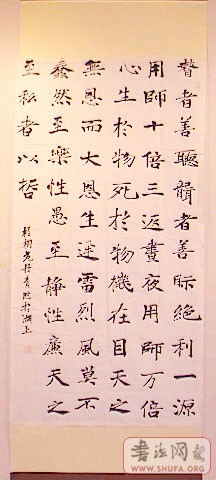 瞽者善聽聾者善眎絶利一源
用師十倍三返晝夜用師万倍
心生於物死於物機在目天之
無恩而大恩生迅雷烈風莫不
蠢然至樂性愚至静性廉天之
至私者以哲
於湖上
WWW.SHUFA.ORG